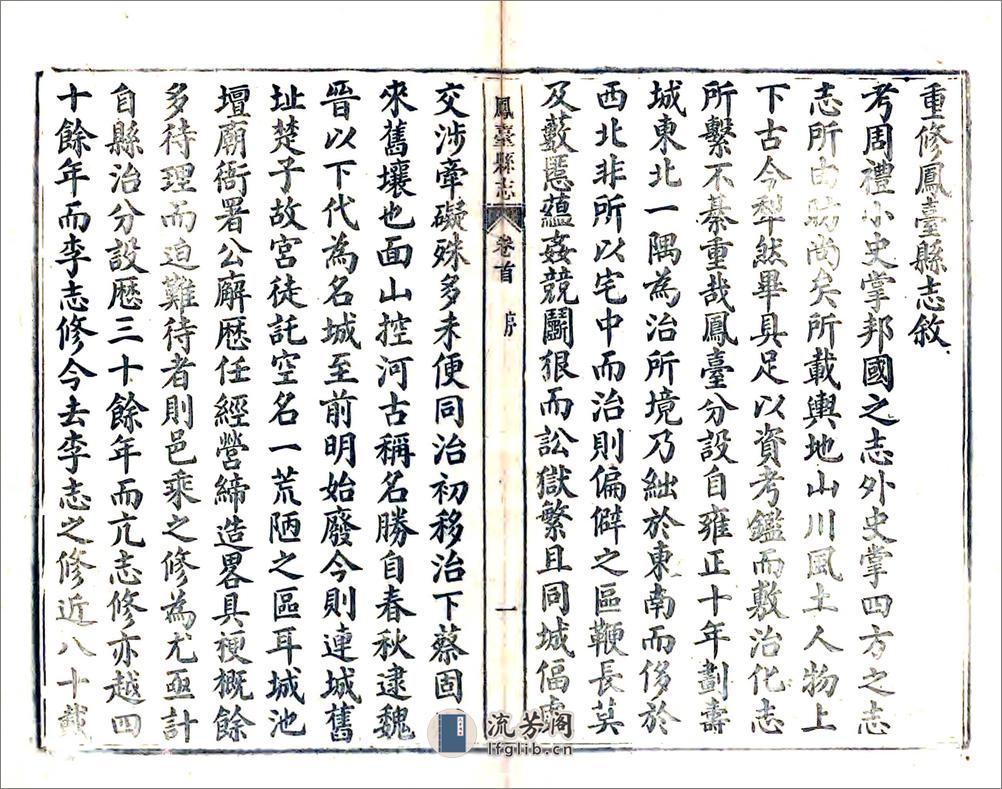 重修鳳臺縣志敘
考周禮小史掌邦國之志外史掌四方之志
志所由昉尚矣所載輿地山川風土人物上
下古今犁然畢具足以資考鑑而敷治化志
所繫不綦重哉鳳臺分設自雍正十年劃壽
城東北一隅為治所境乃絀於東南而侈於
西北非所以宅中而治則偏僻之區鞭長莫
及藪慝蘊姦競鬭狠而訟獄繁且同城偪處
鳳臺縣志 卷首 序 一
交涉牽礙殊多未便同治初移治下蔡固
來舊壤也面山控河古稱名勝自春秋逮魏
晉以下代為名城至前明始廢今則連城舊
址楚子故宮徒託空名一荒陋之區耳城池
壇廟衙署公廨歷任經營締造畧具梗概餘
多待理而迫難待者則邑乘之修為尤亟計
自縣治分設歷三十餘年而亢志修亦越四
十餘年而李志修今去李志之修近八十載
流芳閣
lfglib.cn